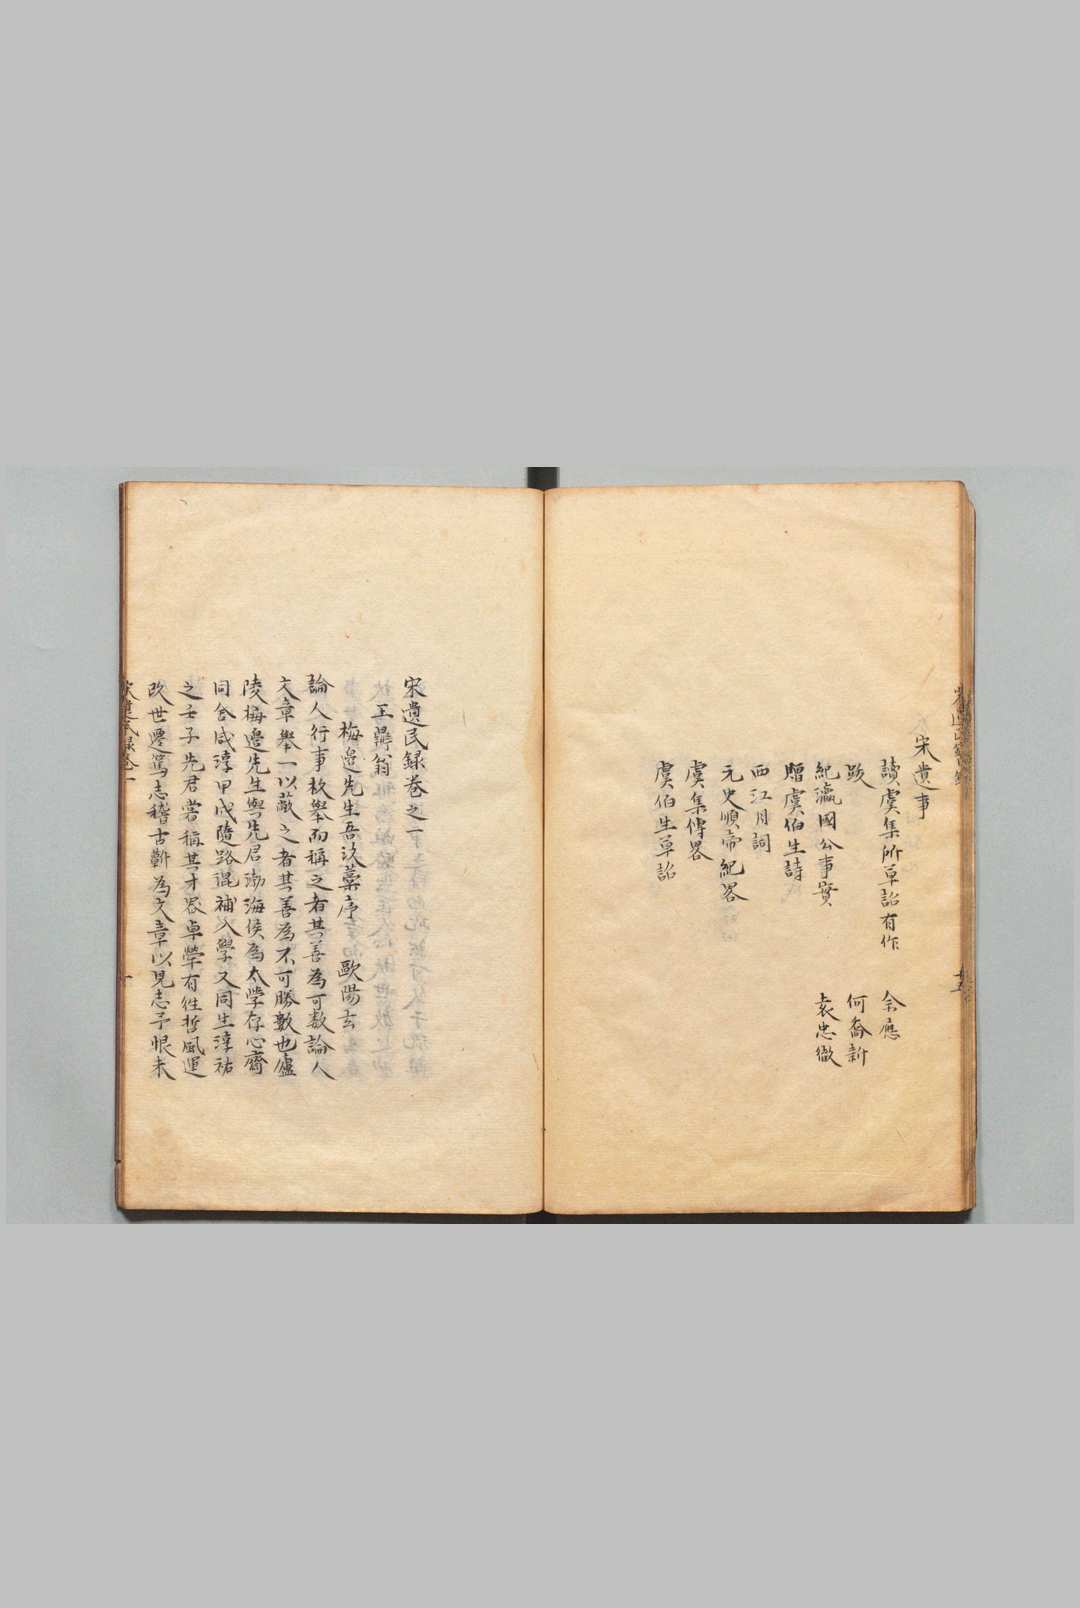 宋遺事
讀虞集所草詔有作 余應
跋 何喬新
紀瀛國公事實 袁忠徹
贈虞伯生詩
西江月詞
元史順帝紀畧
虞集傳畧
虞伯生草詔
宋遺民録卷之一
王鼎翁
梅邉先生吾汶藁序 歐陽玄
論人行事枚舉而稱之者其善為可数論人
文章舉一以蔽之者其善為不可勝數也廬
陵梅邉先生與先君渤海侯為太學存心齋
同舎咸淳甲戌隨路混補入學又同生淳祐
之壬子先君嘗稱其才畧卓犖有往哲風運
改世遷篤志稽古蘄為文章以見志予恨未
宋遺民録卷一
一